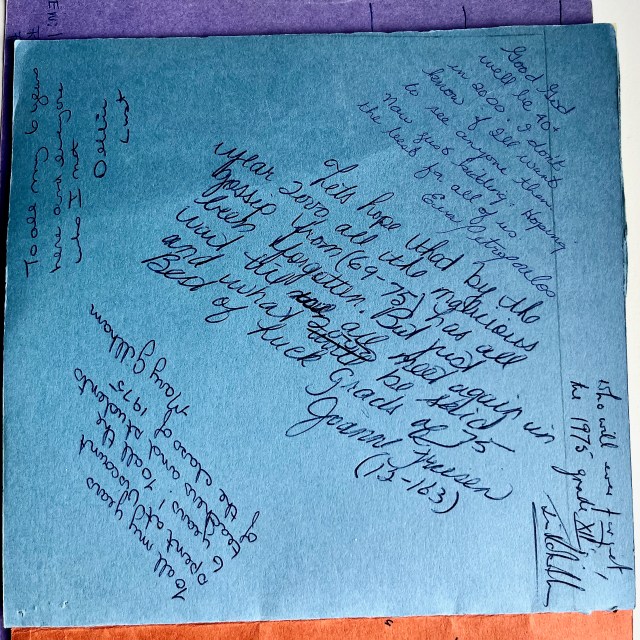 Good God
we'll be 40+
in 2000. I don't
know if I'll want
to see anyone then.
Now just kidding. Hoping
the best for all of us.
Eva Petropoulos
To all my 6 years
here and everyone
who I not
Debbie
Lets hope that by the
year 2000 all the mysterious
gossip from (69-75) has all
been forgotten. But just
wait till we all meet again in
and what be said
Best of luck Grads of 75
Joann Friesen
(73-163)
To all my years
spent at Viscount
6 years! To all the
teachers and students
of the class of 1975
Mary Gillham
Who will ever forget,
the 1975 grade XII,